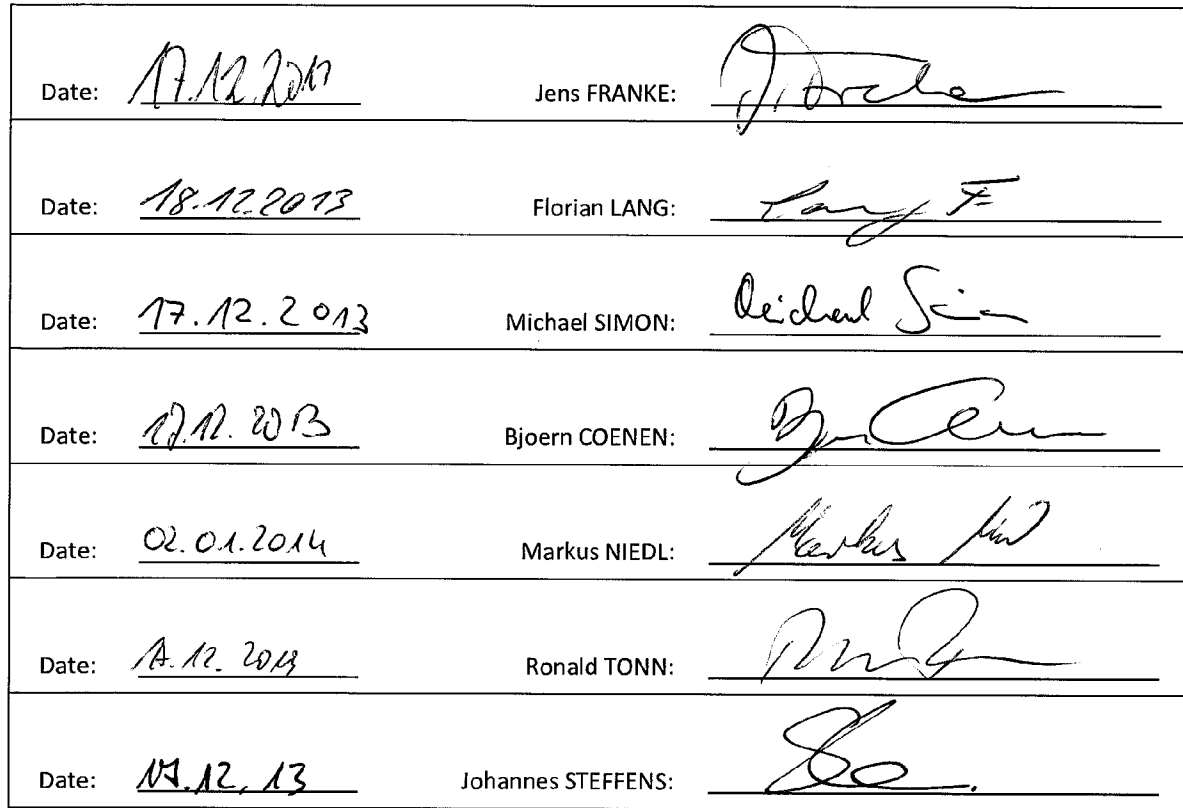 Date: 17.12.2013 Jens FRANKE:
Date: 18.12.2013 Florian LANG: Lang F
Date: 17.12.2013 Michael SIMON: Michael Simon
Date: 17.12.2013 Bjoern COENEN:
Date: 02.01.2014 Markus NIEDL: Markus
Date: Ronald TONN:
Date: 17.12.13 Johannes STEFFENS: